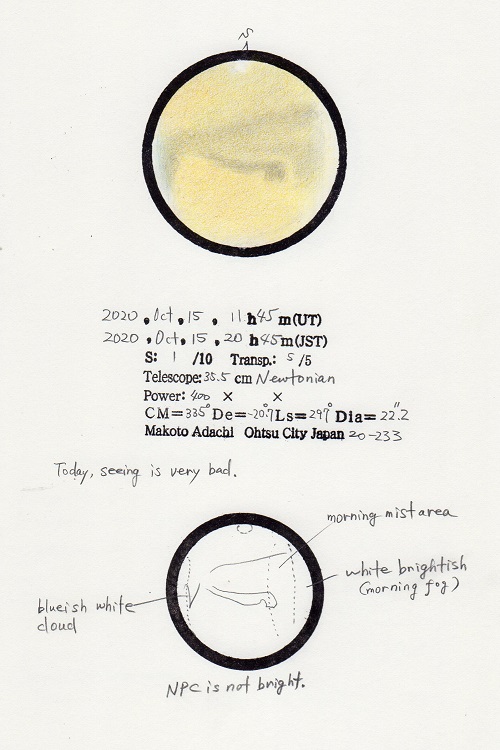 S
2020, Oct, 15, 11 h 45 m (UT)
2020, Oct, 15, 20 h 45 m (JST)
S: 1 /10 Transp.: 5 /5
Telescope: 35.5 cm Newtonian
Power: 400 × ×
CM=335° De=-20.7° Ls=297° Dia= 22."2
Makoto Adachi Ohtsu City Japan 20-233
Today, seeing is very bad.
morning mist area
white brightish
(morning fog)
blueish white
cloud
NPC is not bright.